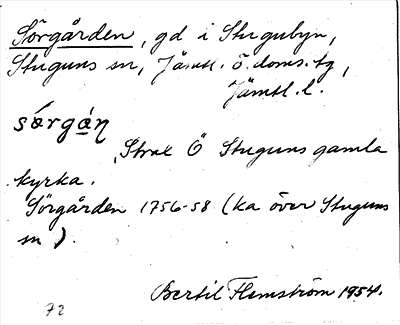 Sörgården, gd i Stugubyn,
Stuguns sn, Jämtl. ö. doms. tg,
Jämtl. l.
sǿrgáɳ
Strax Ö Stuguns gamla
kyrka.
Sörgården 1756-58 (ka över Stuguns
sn).
Bertil Flemström 1954.
72